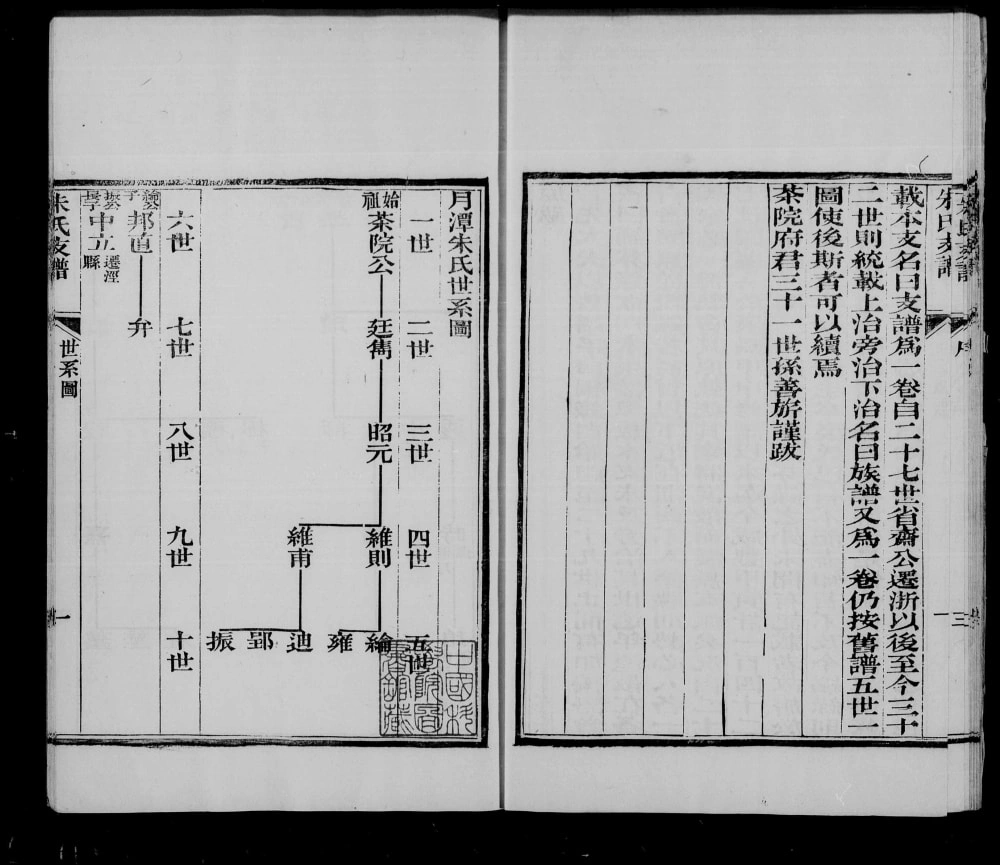 朱氏支譜
三
載本支名曰支譜爲一卷自二十七世省齋公遷浙以後至今三十
二世則統載上治旁治下治名曰族譜又爲一卷仍按舊譜五世一
圖使後斯者可以續焉
茶院府君三十一世孫善旂謹跋
月潭朱氏世系圖
一世
二世
三世
四世
五世
始祖茶院公
廷雋
昭元
維則
維甫
綸
雍
迪
郢
振
六世
七世
八世
九世
十世
邦道
弁
中立遷涇縣
朱氏支譜
世系圖
一